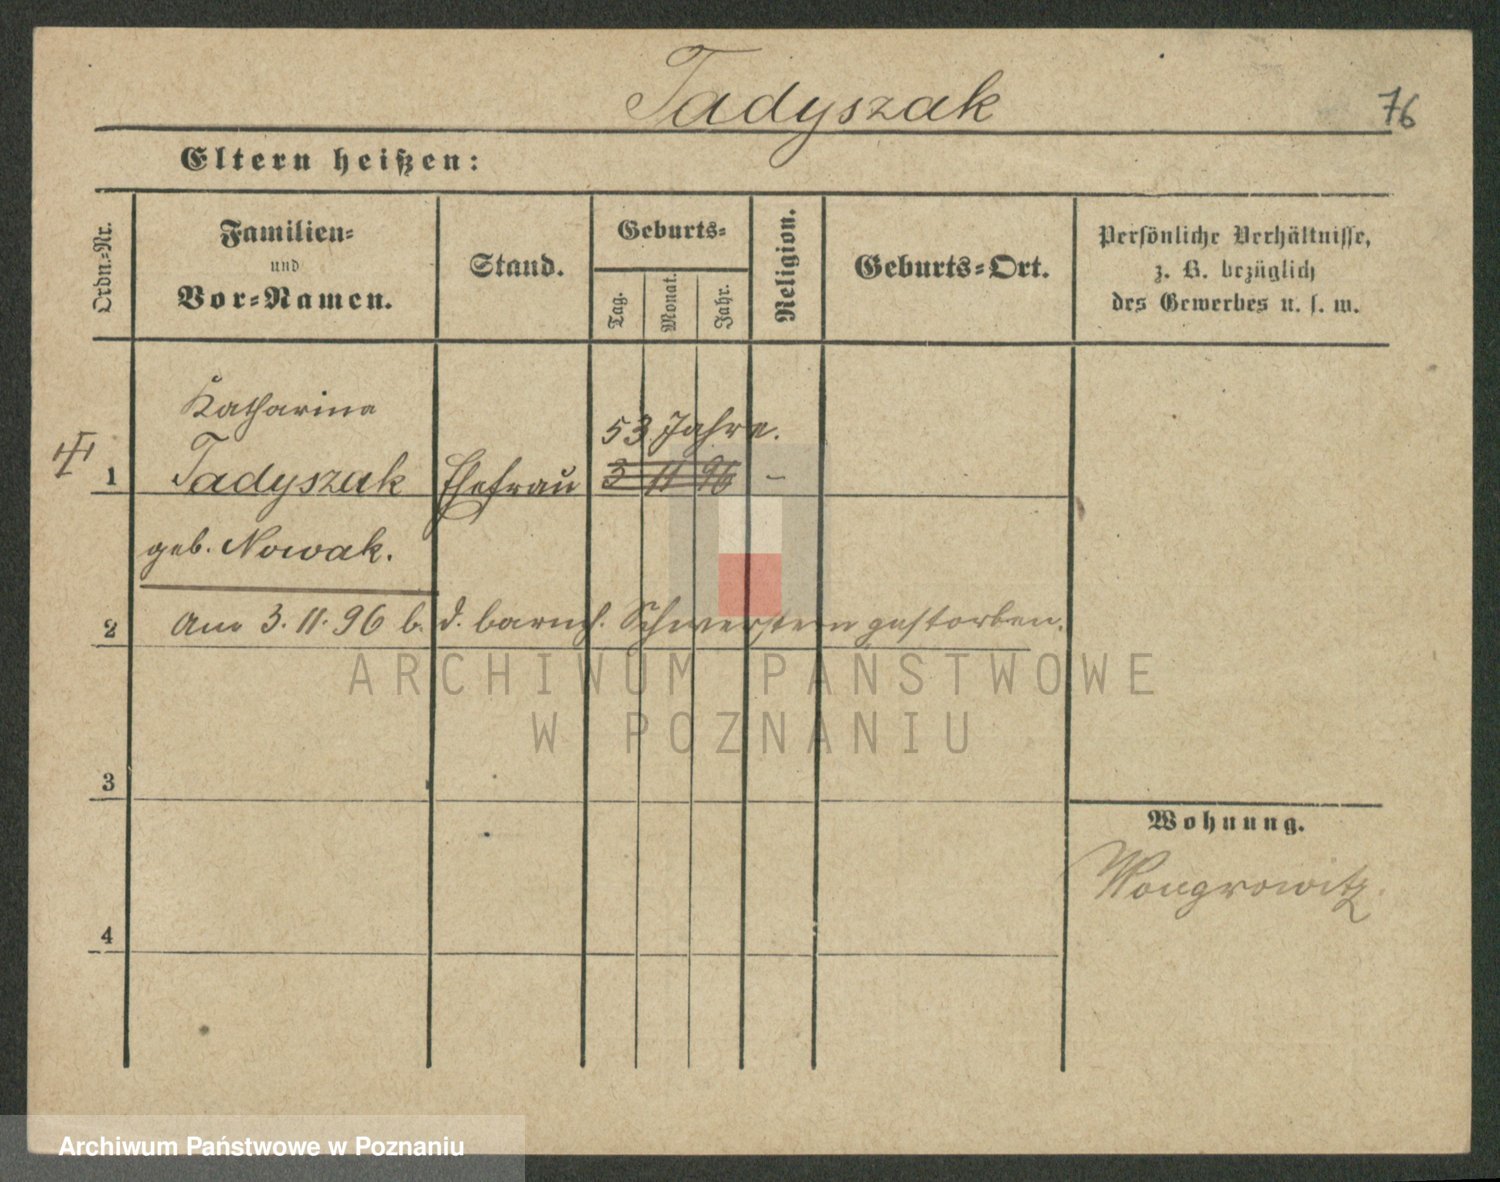 Tadyszak
76
Eltern heißen:
Ordn.-Nr.
Familien-
und
Vor-Namen.
Stand.
Geburts-
Tag.
Monat.
Jahr.
Religion.
Geburts-Ort.
Persönliche Verhältnisse,
z. B. bezüglich
des Gewerbes u. s. w.
Katharina
53 Jahre.
1 Tadyszak Ehefrau 3 11 96 –
geb. Nowak.
2 Am 3. 11. 96 b. d. barmh. Schwestern gestorben.
ARCHIWUM PAŃSTWOWE
W POZNANIU
3
Wohnung.
Wongrowitz
4
Archiwum Państwowe w Poznaniu